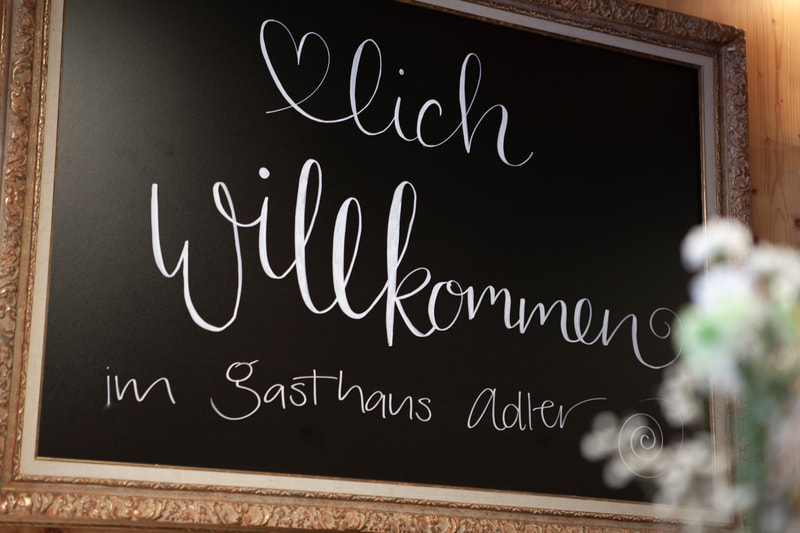 ♡lich
Willkommen
im Gasthaus Adler